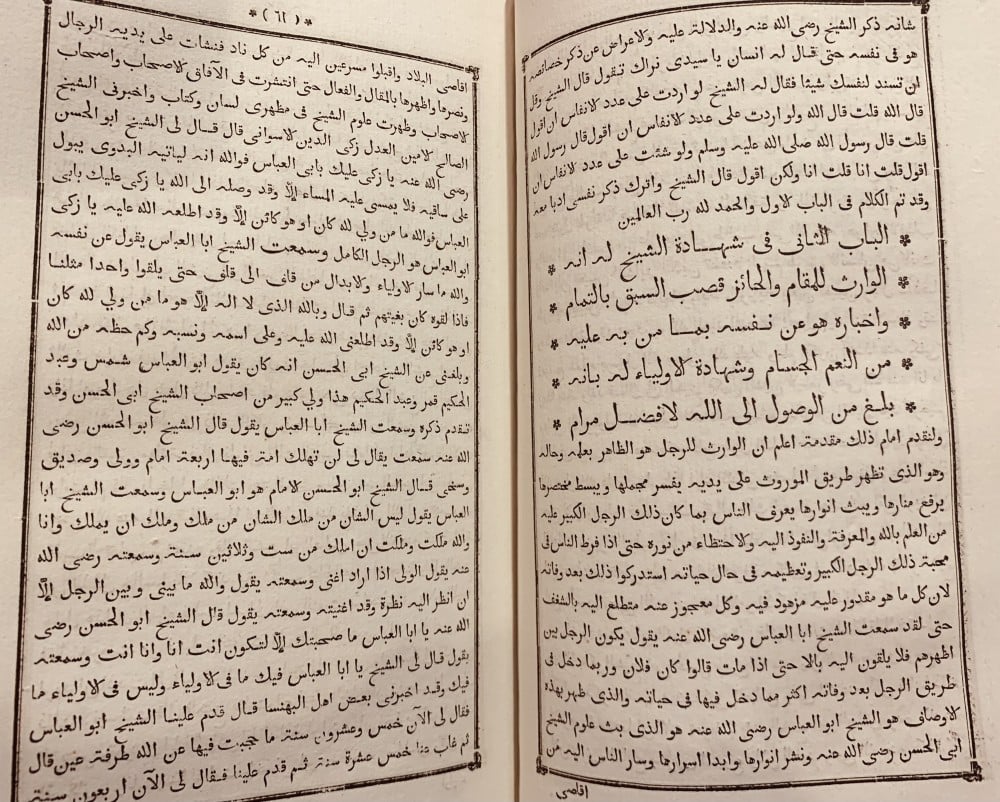 شانه ذكر الشيخ رضى الله عنه والدلالة عليه والاعراض عن ذكر خصائصه
هو فى نفسه حتى قال له انسان يا سيدى نراك تقول قال الشيخ وقل
ان تسند لنفسك شيئا فقال له الشيخ لو اردت على عدد الانفاس ان اقول
قال الله قلت قال الله ولو اردت على عدد الانفاس ان اقول قال رسول الله
قلت قال رسول الله صلى الله عليه وسلم ولو شئت على عدد الانفاس ان
اقول قلت انا قلت انا ولكن اقول قال الشيخ واترك ذكر نفسى ادبا معه
وقد تم الكلام فى الباب الاول والحمد لله رب العالمين
* الباب الثانى فى شهادة الشيخ له انه *
* الوارث للمقام والحائز قصب السبق بالتمام *
* واخباره هو عن نفسه بما من به عليه *
* من النعم الجسام وشهادة الاولياء له بانه *
* بلغ من الوصول الى الله لافضل مرام *
ولنقدم امام ذلك مقدمة اعلم ان الوارث للرجل هو الظاهر بعلمه وحاله
وهو الذى تظهر طريق الموروث على يديه يفسر مجملها ويبسط مختصرها
يرفع منارها ويبث انوارها يعرف الناس بما كان ذلك الرجل الكبير عليه
من العلم بالله والمعرفة والنفوذ اليه والاحتظاء من نوره حتى اذا فرط الناس فى
محبة ذلك الرجل الكبير وتعظيمه فى حال حياته استدركوا ذلك بعد وفاته
لان كل ما هو مقدور عليه مزهود فيه وكل معجوز عنه متطلع اليه بالشغف
حتى لقد سمعت الشيخ ابا العباس رضى الله عنه يقول يكون الرجل بين
اظهرهم فلا يلقون اليه بالا حتى اذا مات قالوا كان فلان وربما دخل فى
طريق الرجل بعد وفاته اكثر مما دخل فيها فى حياته والذى ظهر بهذه
الاوصاف هو الشيخ ابو العباس رضى الله عنه هو الذى بث علوم الشيخ
ابى الحسن رضى الله عنه ونشر انوارها وابدا اسرارها وسار الناس اليه من
اقاصى
* (٦١) *
اقاصى البلاد واقبلوا مسرعين اليه من كل ناد فنشات على يديه الرجال
ونصرها واظهرها بالمقال والفعال حتى انتشرت فى الآفاق الاصحاب واصحاب
الاصحاب وظهرت علوم الشيخ فى مظهرى لسان وكتاب واخبرنى الشيخ
الصالح الامين العدل زكى الدين الاسوانى قال قال لى الشيخ ابو الحسن
رضى الله عنه يا زكى عليك بابى العباس فوالله انه لياتيه البدوى يبول
على ساقيه فلا يمسى عليه المساء إلّا وقد وصله الى الله يا زكى عليك بابى
العباس فوالله ما من ولي لله كان او هو كائن إلّا وقد اطلعه الله عليه يا زكى
ابو العباس هو الرجل الكامل وسمعت الشيخ ابا العباس يقول عن نفسه
والله ما سار الاولياء والابدال من قاف الى قاف حتى يلقوا واحدا مثلنا
فاذا لقوه كان بغيتهم ثم قال وبالله الذى لا اله إلّا هو ما من ولي لله كان
او هو كائن إلّا وقد اطلعنى الله عليه وعلى اسمه ونسبه وكم حظه من الله
وبلغنى عن الشيخ ابى الحسن انه كان يقول ابو العباس شمس وعبد
الحكيم قمر وعبد الحكيم هذا ولي كبير من اصحاب الشيخ ابى الحسن وقد
تقدم ذكره وسمعت الشيخ ابا العباس يقول قال الشيخ ابو الحسن رضى
الله عنه سمعت يقال لى لن تهلك امة فيها اربعة امام وولى وصديق
وسخى قال الشيخ ابو الحسن الامام هو ابو العباس وسمعت الشيخ ابا
العباس يقول ليس الشان من ملك الشان من ملك وملك ان يملك وانا
والله ملكت وملكت ان املك من ست وثلاثين سنة وسمعته رضى الله
عنه يقول الولى اذا اراد اغنى وسمعته يقول والله ما بينى وبين الرجل إلّا
ان انظر اليه نظرة وقد اغنيته وسمعته يقول قال الشيخ ابو الحسن رضى
الله عنه يا ابا العباس ما صحبتك إلّا لتكون انت انا وانا انت وسمعته
يقول قال لى الشيخ يا ابا العباس فيك ما فى الاولياء وليس فى الاولياء ما
فيك وقد اخبرنى بعض اهل البهنسا قال قدم علينا الشيخ ابو العباس
فقال لى الآن خمس وعشرون سنة ما حجبت فيها عن الله طرفة عين قال
ثم غاب عنا خمس عشرة سنة ثم قدم علينا فقال لى الآن اربعون سنة